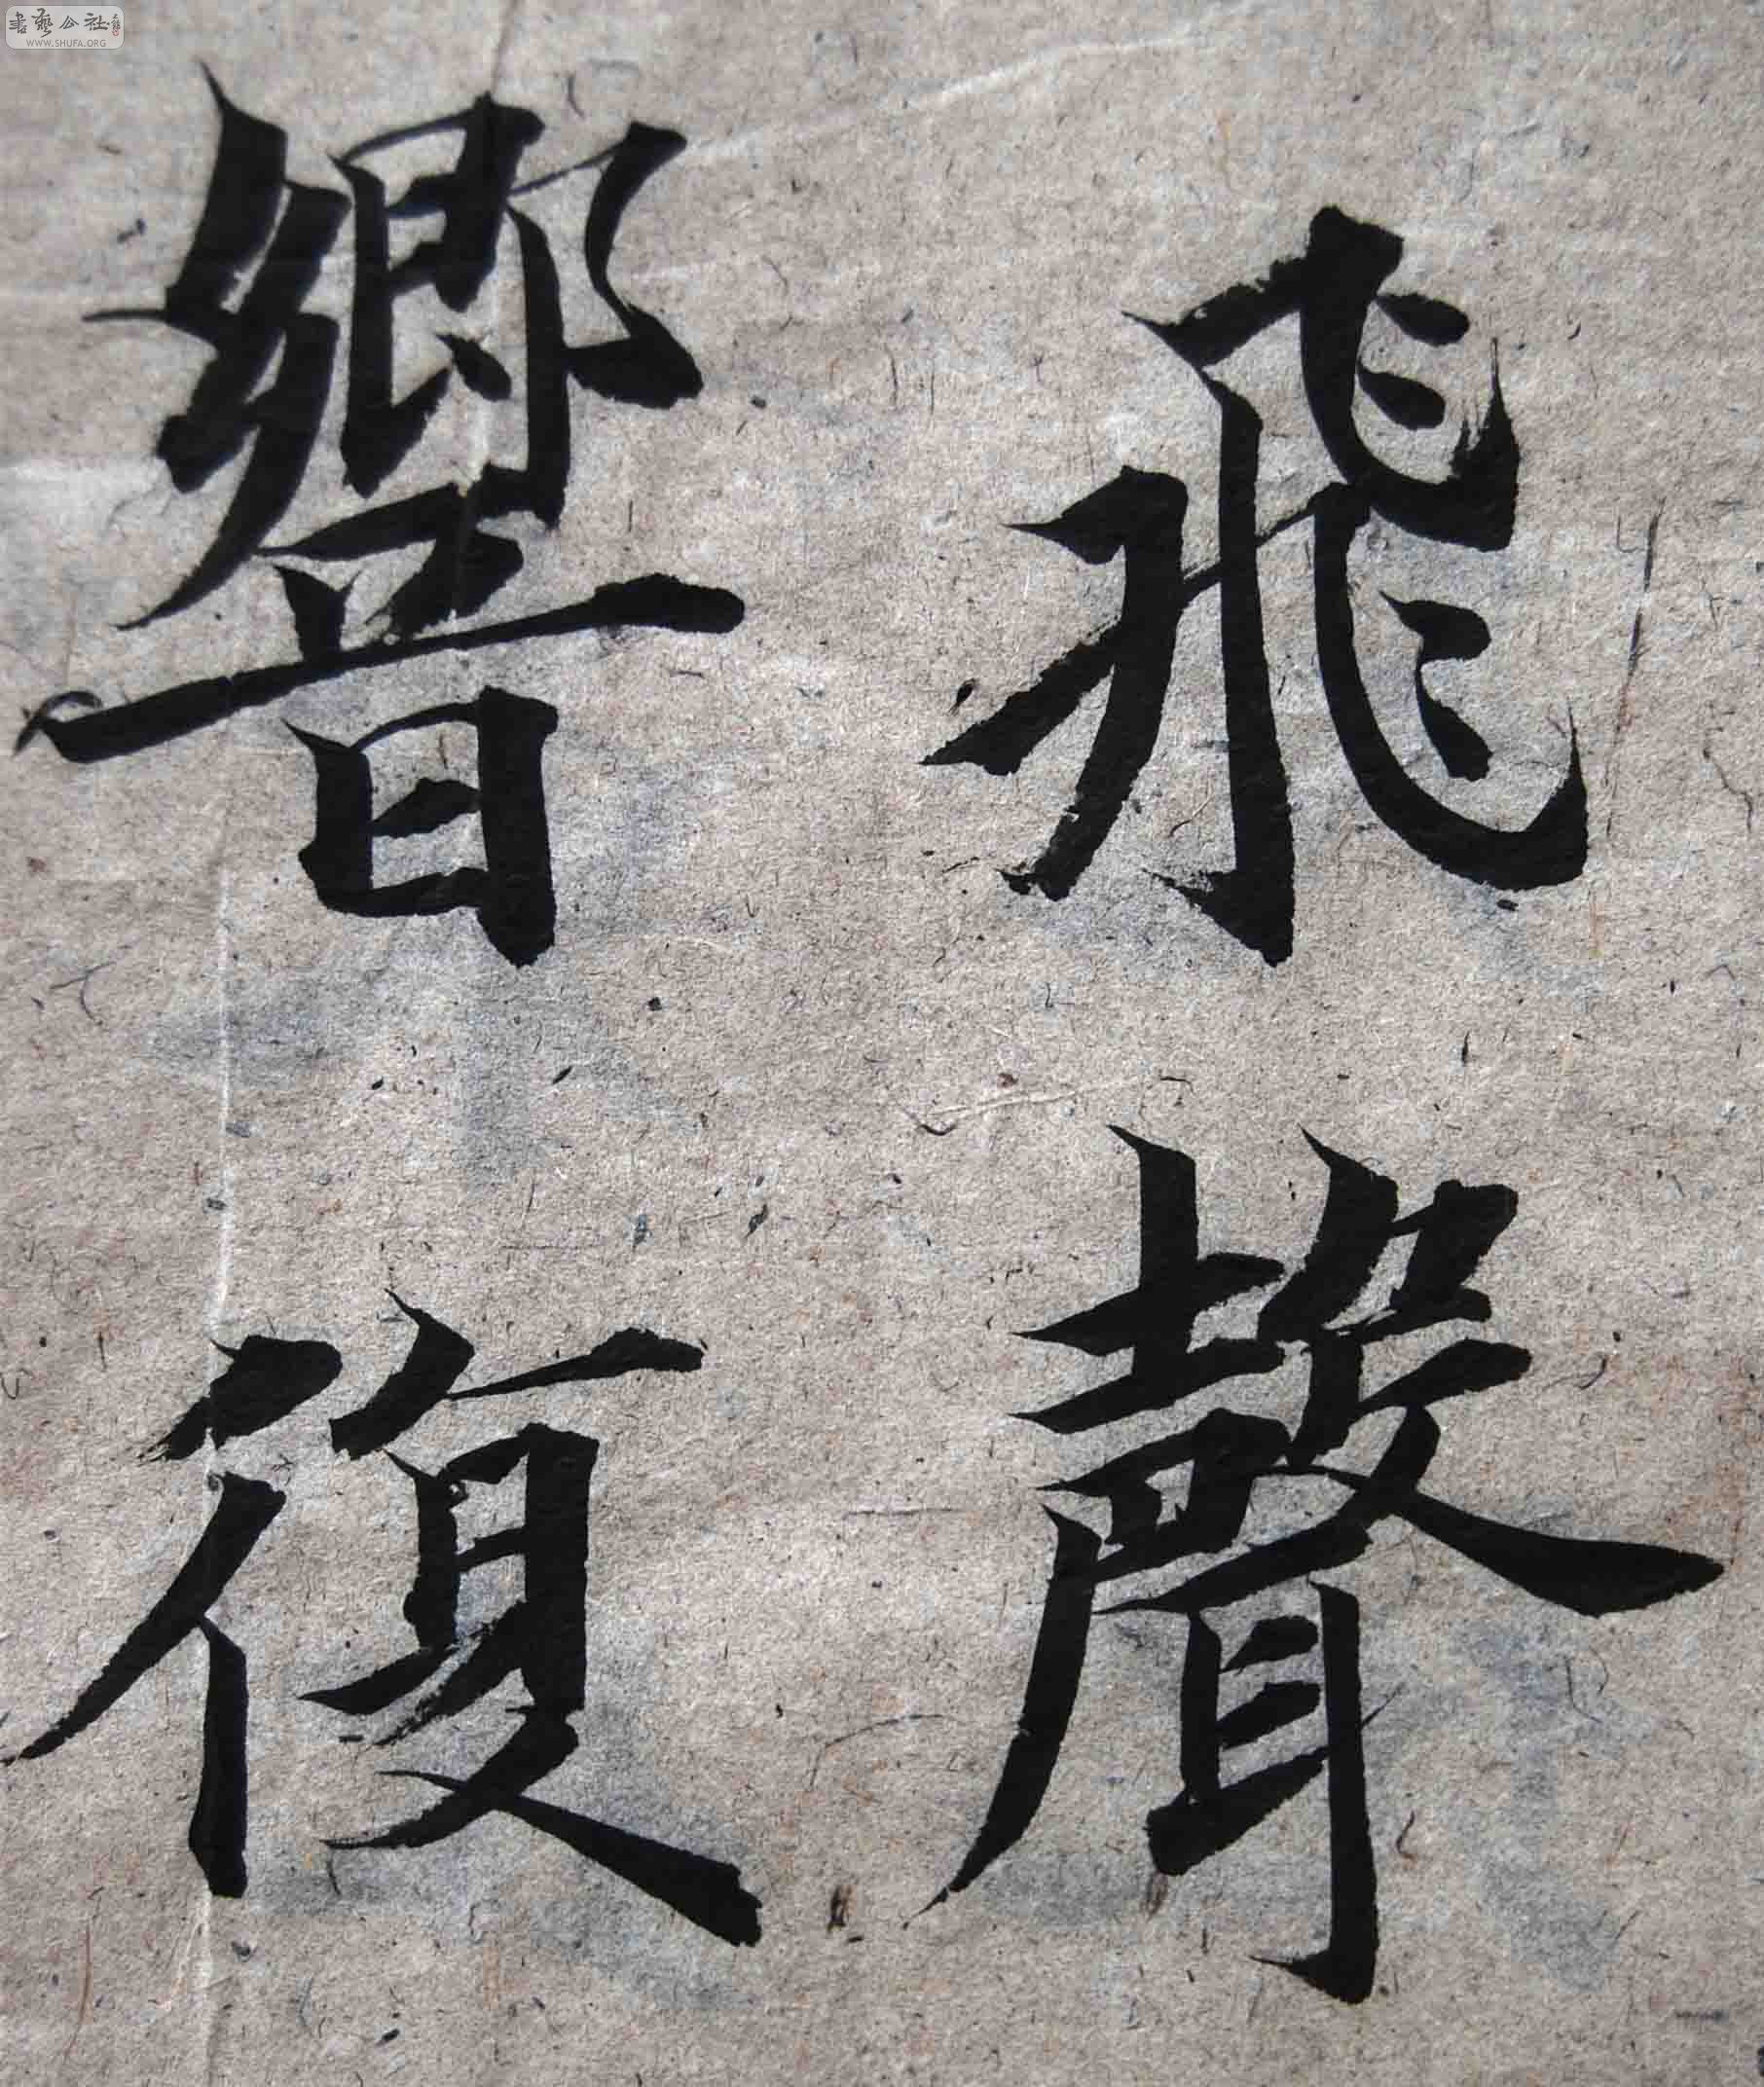 飛聲
響復
書藝公社
WWW.SHUFA.ORG